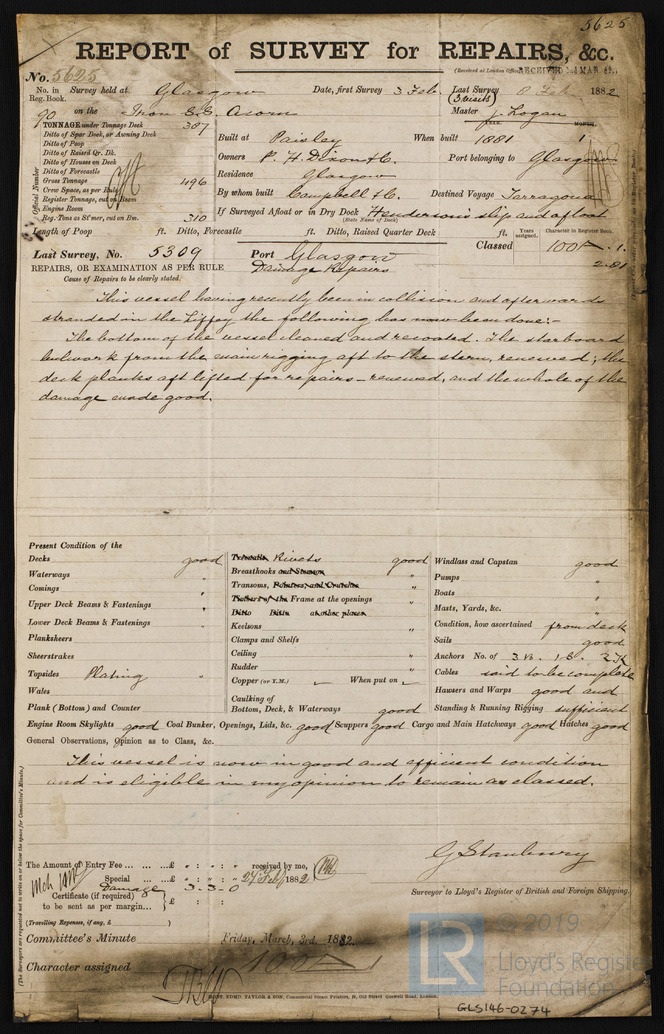 5625
REPORT of SURVEY for REPAIRS, &c.
(Received at London Office RECEIVED 1 MAR 82
No. 5625
No. in Reg. Book. Survey held at Glasgow Date, first Survey 3 Feb. Last Survey 8 Feb 1882
90 on the Iron S.S. (3 visits) Master J. Logan
TONNAGE under Tonnage Deck 387
Ditto of Spar Deck, or Awning Deck
Ditto of Poop
Ditto of Raised Qr. Dk.
Ditto of Houses on Deck
Ditto of Forecastle
Gross Tonnage 496
Crew Space, as per Rule
Register Tonnage, cut on Beam
Engine Room
Reg. Tons as St'mer, cut on Bm. 310
Official Number
Built at Paisley When built YEAR. 1881 MONTH. 1
Owners P. H. Dixon & Co. Port belonging to Glasgow
Residence Glasgow
By whom built Campbell & Co. Destined Voyage Tarragona
If Surveyed Afloat or in Dry Dock Henderson's slip and afloat
(State Name of Dock)
Length of Poop ft. Ditto, Forecastle ft. Ditto, Raised Quarter Deck ft.
Years assigned. Character in Register Book.
Last Survey, No. 5309 Port Glasgow Classed 100A 1.
2.81
REPAIRS, OR EXAMINATION AS PER RULE Damage Repairs
Cause of Repairs to be clearly stated.
This vessel having recently been in collision and afterwards
stranded in the Liffey the following has now been done:-
The bottom of the vessel cleaned and recoated. The starboard
bulwark from the main rigging aft to the stern, renewed; the
deck planks aft lifted for repairs - renewed, and the whole of the
damage made good.
Present Condition of the
Decks good
Waterways "
Comings "
Upper Deck Beams & Fastenings "
Lower Deck Beams & Fastenings "
Planksheers
Sheerstrakes
Topsides Plating "
Wales
Plank (Bottom) and Counter
Treenails Rivets good
Breasthooks and Stemson "
Transoms, Pointers, and Crutches "
Timbers of the Frame at the openings "
Ditto Ditto at other places
Keelsons "
Clamps and Shelfs
Ceiling "
Rudder "
Copper (or Y.M.) When put on
Caulking of
Bottom, Deck, & Waterways good
Windlass and Capstan good
Pumps "
Boats "
Masts, Yards, &c. "
Condition, how ascertained from deck
Sails good
Anchors No. of 3.B. 1.S. 2.K
Cables said to be complete
Hawsers and Warps good and
Standing & Running Rigging sufficient
Engine Room Skylights good Coal Bunker, Openings, Lids, &c. good Scuppers good Cargo and Main Hatchways good Hatches good
General Observations, Opinion as to Class, &c.
This vessel is now in good and efficient condition
and is eligible in my opinion to remain as classed.
The Amount of Entry Fee ... ... £ : : received by me,
Special ... ... £ : : 27 Feb 1882
Damage 3 . 3 . 0
Certificate (if required) to be sent as per margin... £ : :
(Travelling Expenses, if any, £ )
Surveyor to Lloyd's Register of British and Foreign Shipping.
Committee's Minute Friday, March, 3rd. 1882.
Character assigned 100A
PRINT. EDMD. TAYLOR & SON, Commercial Steam Printers, Old Street Goswell Road, London.
(The Surveyors are requested not to write on or below the space for Committee's Minute.)
© 2019
LR
Lloyd's Register
Foundation
GLS146-0274